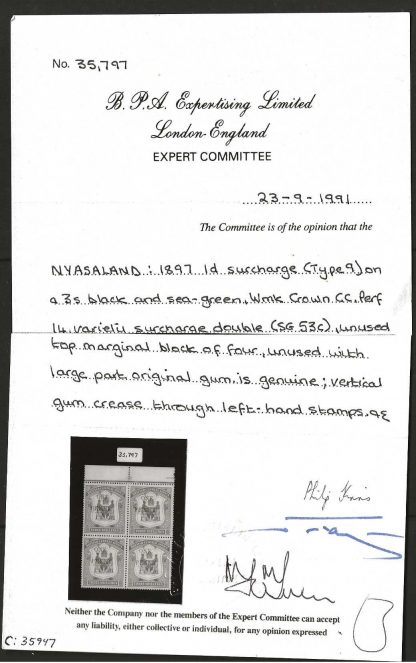 No. 35,797
B.P.A. Expertising Limited
London-England
EXPERT COMMITTEE
23-9-1991
The Committee is of the opinion that the
NYASALAND : 1897 1d surcharge (Type 9) on
a 3s black and sea-green, Wmk Crown CC, Perf
14 variety surcharge double (SG 53c), unused
top marginal block of four, unused with
large part original gum, is genuine; vertical
gum crease through left-hand stamps.
35,797
Neither the Company nor the members of the Expert Committee can accept
any liability, either collective or individual, for any opinion expressed
C: 35947